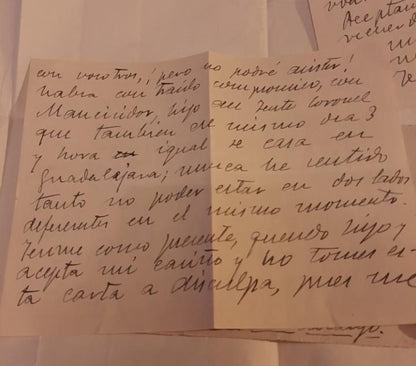 Aceptan
con vosotros, ¡pero no podré asistir!
habia contraido compromiso, con
Mancicidor, hijo del Tente Coronel
que también el mismo dia 3
y hora igual se casa en
Guadalajara; nunca he sentido
tanto no poder estar en dos lados
diferentes en el mismo momento.
Tenme como presente, querido hijo y
acepta mi cariño y no tomes es-
ta carta a disculpa, pues me